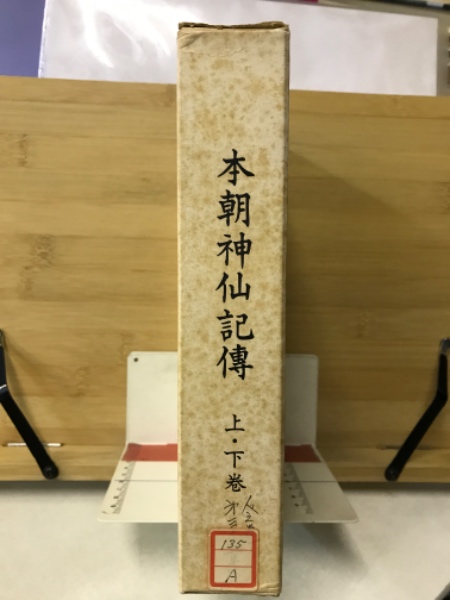 本朝神仙記傳
上・下巻
135
A